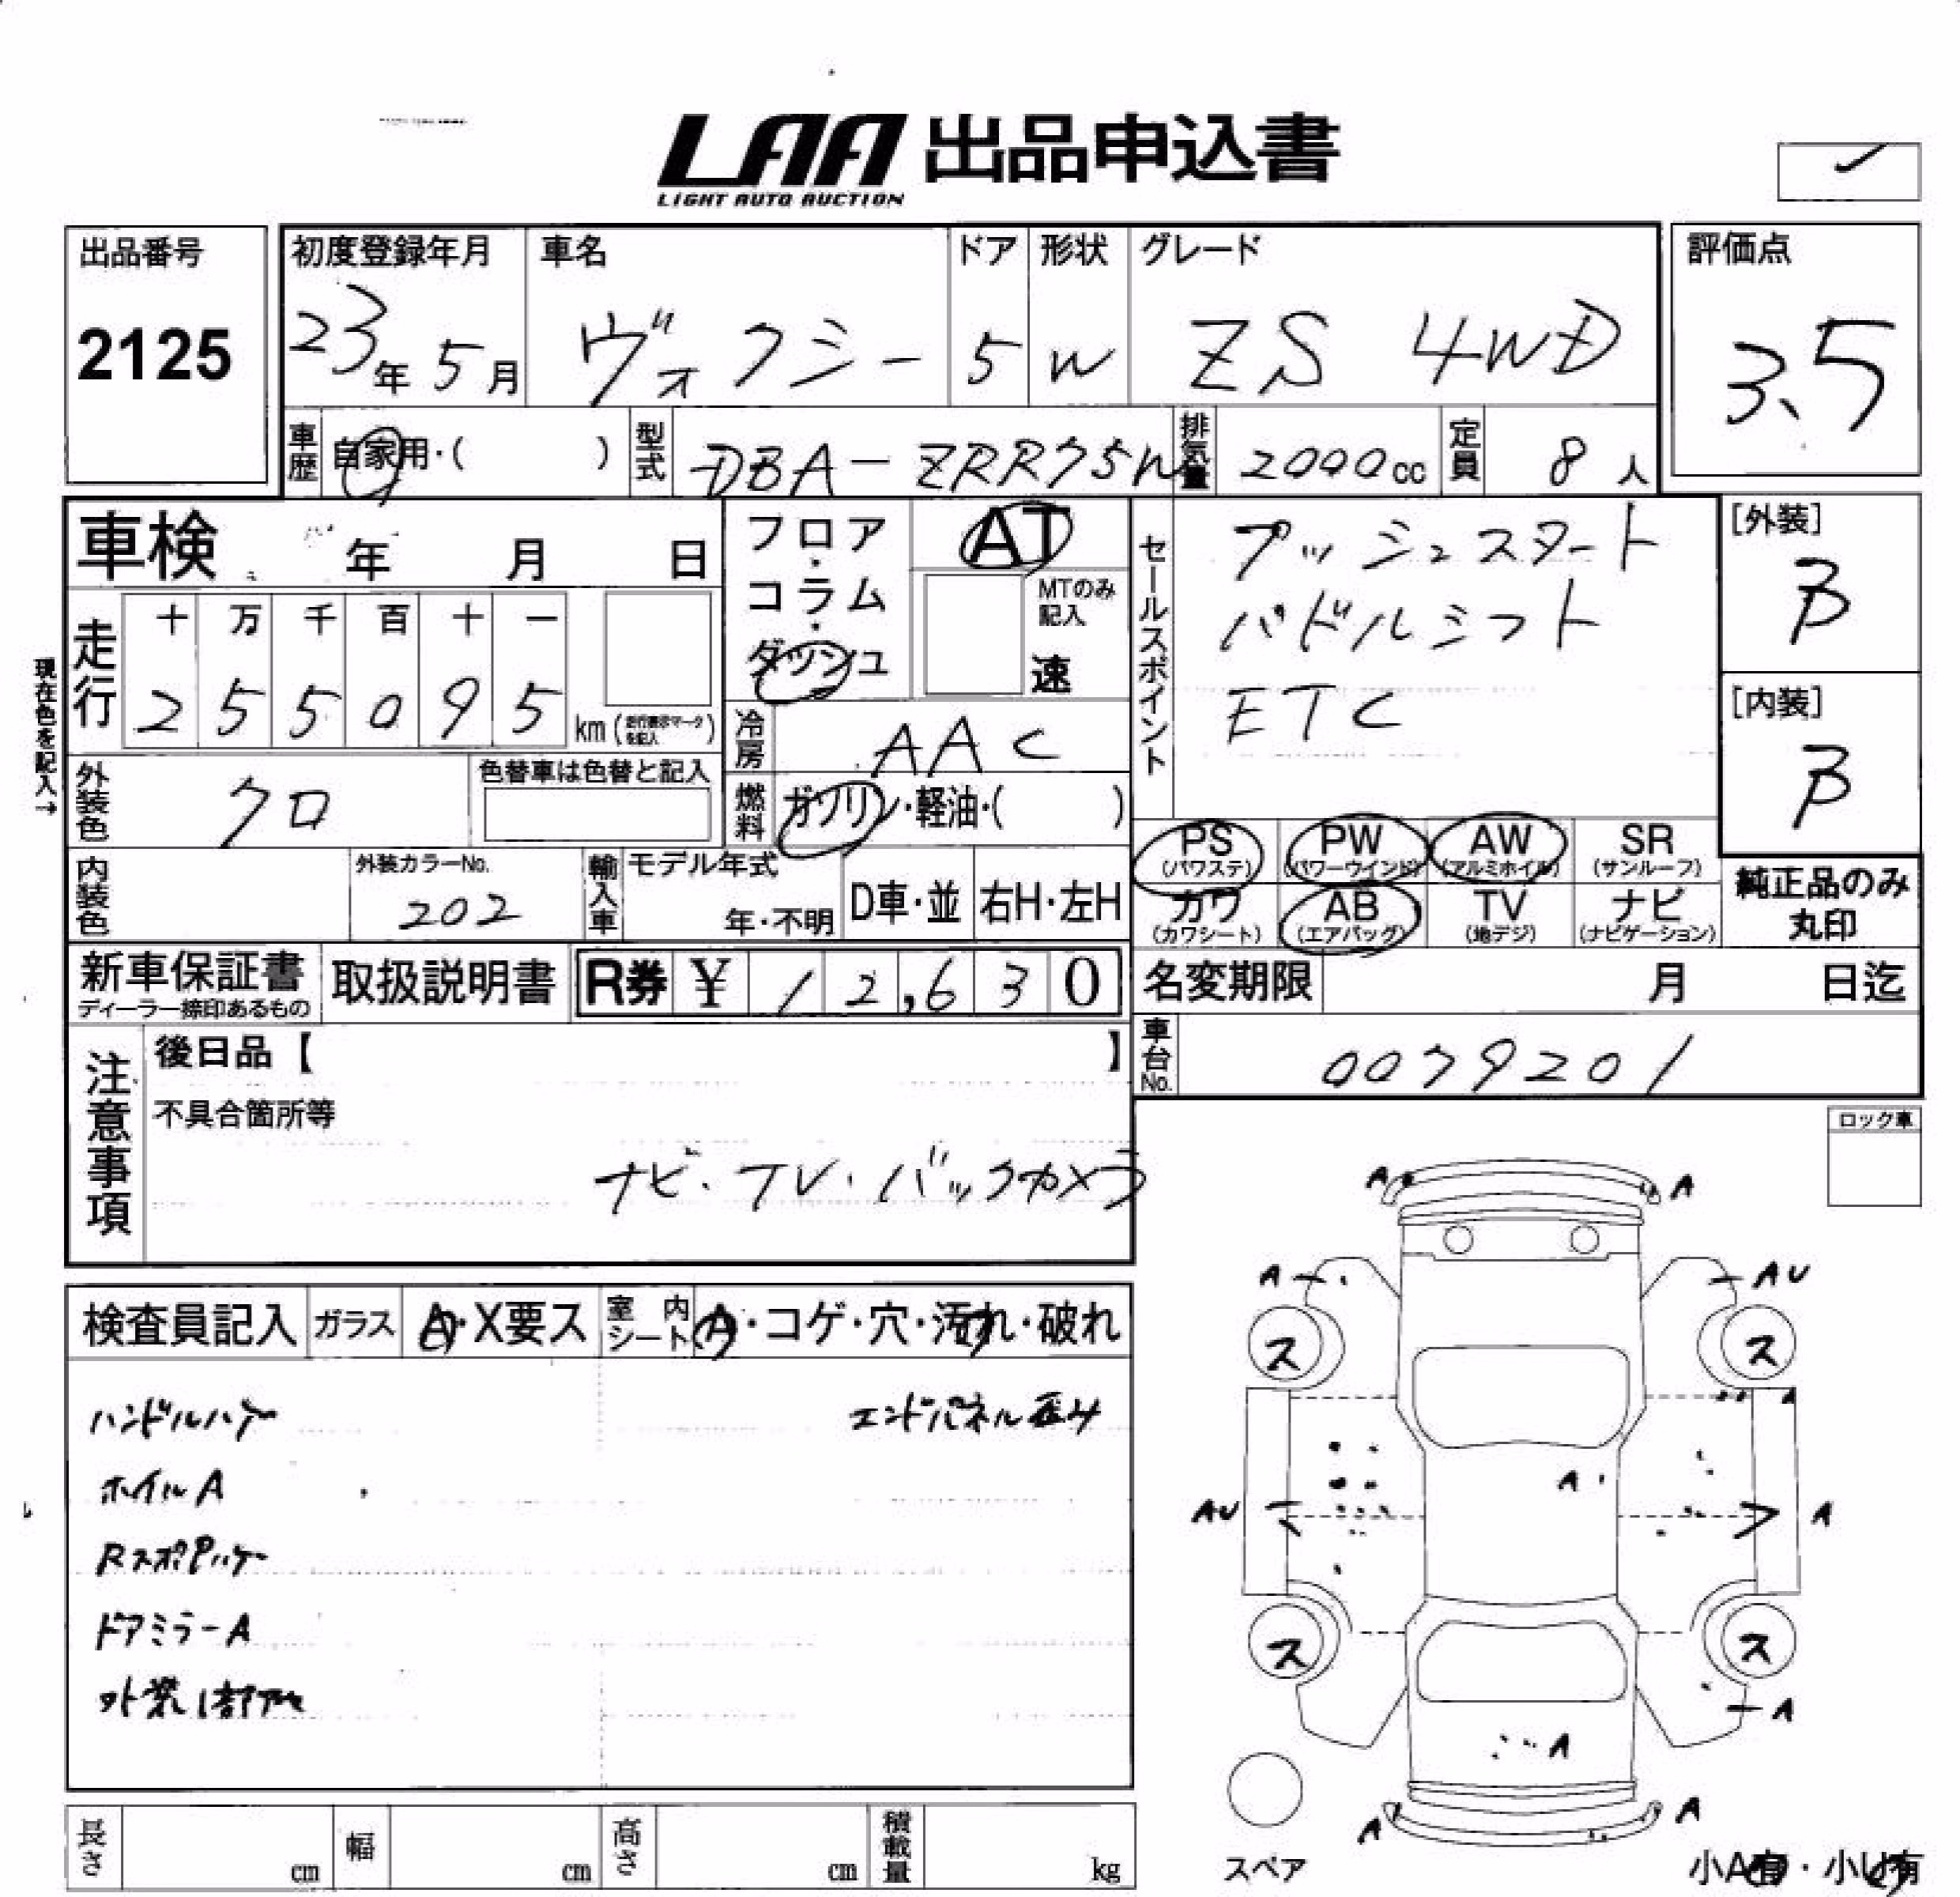 LAA 出品申込書
LIGHT AUTO AUCTION
出品番号
2125
初度登録年月
23年 5月
車名
ヴォクシー
ドア
5
形状
W
グレード
ZS 4WD
評価点
3.5
車歴
自家用・( )
型式
DBA-ZRR75W
排気量
2000cc
定員
8 人
車検 年 月 日
フロア・コラム・ダッシュ
AT
MTのみ記入
速
セールスポイント
プッシュスタート
パドルシフト
ETC
[外装]
B
[内装]
B
現在色を記入→
走行
十 万 千 百 十 一
2 5 5 0 9 5
km (走行表示マークを記入)
冷房
AAC
外装色
クロ
色替車は色替と記入
燃料
ガソリン・軽油・( )
PS (パワステ)
PW (パワーウインド)
AW (アルミホイル)
SR (サンルーフ)
カワ (カワシート)
AB (エアバッグ)
TV (地デジ)
ナビ (ナビゲーション)
純正品のみ丸印
内装色
外装カラーNo.
202
輸入車
モデル年式
年・不明
D車・並
右H・左H
新車保証書
ディーラー捺印あるもの
取扱説明書
R券 ¥ 12,630
名変期限 月 日迄
車台No.
0079201
注意事項
後日品【 】
不具合箇所等
ナビ・TV・バックカメラ
ロック車
検査員記入
ガラス
A・X要ス
室内シート
A・コゲ・穴・汚れ・破れ
ハンドルハゲ
エンドパネル歪み
ホイルA
ドアミラーA
A A
A AU
ス ス
A
A
AU A
ス ス
A
A
A A
スペア
小A有・小U有
長さ cm
幅 cm
高さ cm
積載量 kg